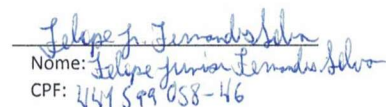 Felipe Jr. Fernandes Silva
Nome: Felipe Junior Fernandes Silva
CPF: 447 599 058-46